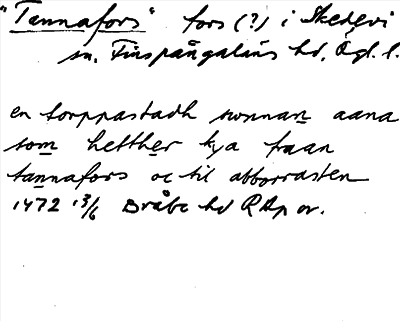 "Tannafors" fors (?) i Skedevi
sn. Finspångaläns hd, Ögl. l.
en torppastadh sunnan aana
som hetther kya fraan
tannafors oc til abborrasten
1472 13/6 Bråbo hd RAp or.